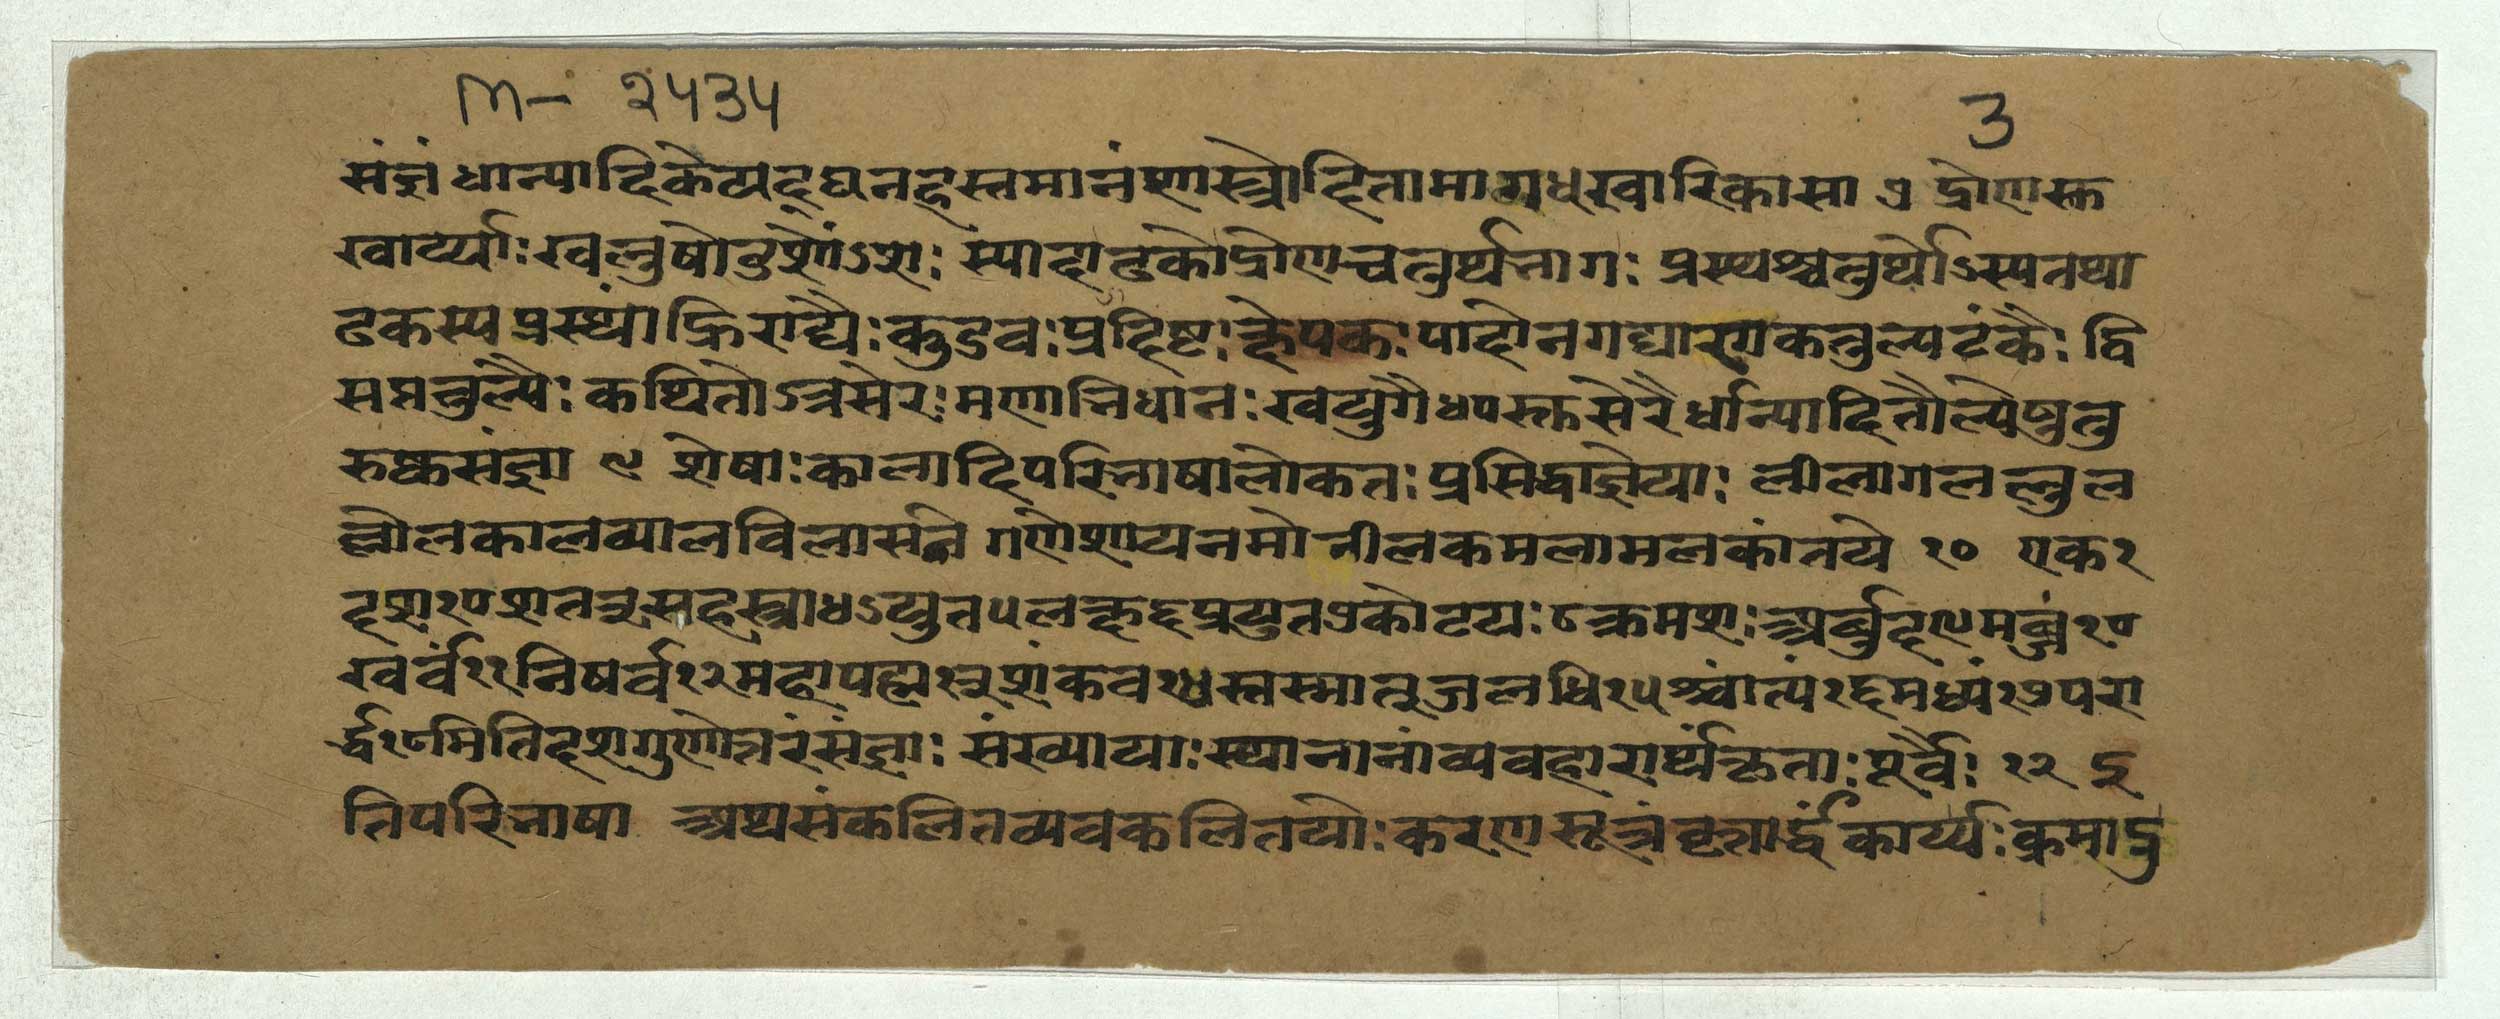 M- २५३५
3
संज्ञं धान्यादिकेयद्घनहस्तमानंशास्त्रोदितामागधखारिकासा ७ द्रोणस्तु
खार्य्याः खलुषोडशोंऽशः स्यादाढकोद्रोणचतुर्थभागः प्रस्थश्चतुर्थोऽस्यतथा
ढकस्यप्रस्थांघ्रिराद्यैः कुडवः प्रदिष्टः क्षेपकः पादोनगद्याणकतुल्यटंकैः द्वि
सप्ततुल्यैः कथितोऽत्रसेरः मणाभिधानः खयुगैश्चसेरैर्धान्यादितौल्येषुतु
रुष्कसंज्ञा ९ शेषाः कालादिपरिभाषालोकतः प्रसिद्धाज्ञेयाः लीलागललुल
ल्लोलकालव्यालविलासिने गणेशायनमोनीलकमलामलकांतये १० एक१
दश१०शत३सहस्रा४ऽयुत५लक्ष६प्रयुत७कोटयः ८क्रमशः अर्बुद९मब्जं१०
खर्व११निषर्व१२महापद्म१३शंकव१४स्तस्मात् जलधि१५श्चांत्यं१६मध्यं१७परा
र्द्ध१८मितिदशगुणोत्तरंसंज्ञाः संख्यायाः स्थानानांव्यवहारार्थंकृताः पूर्वैः १२ इ
तिपरिभाषा अथसंकलितव्यवकलितयोः करणसूत्रंवृत्तार्द्धं कार्य्यः क्रमादु